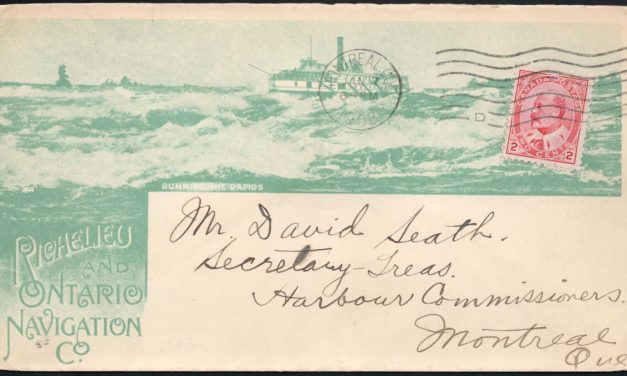 MONTREAL
1908
CANADA POSTAGE
2 2
TWO CENTS
D
RUNNING THE RAPIDS
RICHELIEU
AND
ONTARIO
NAVIGATION
CO
Mr. David Seath.
Secretary-Treas.
Harbour Commissioners.
Montreal
Que